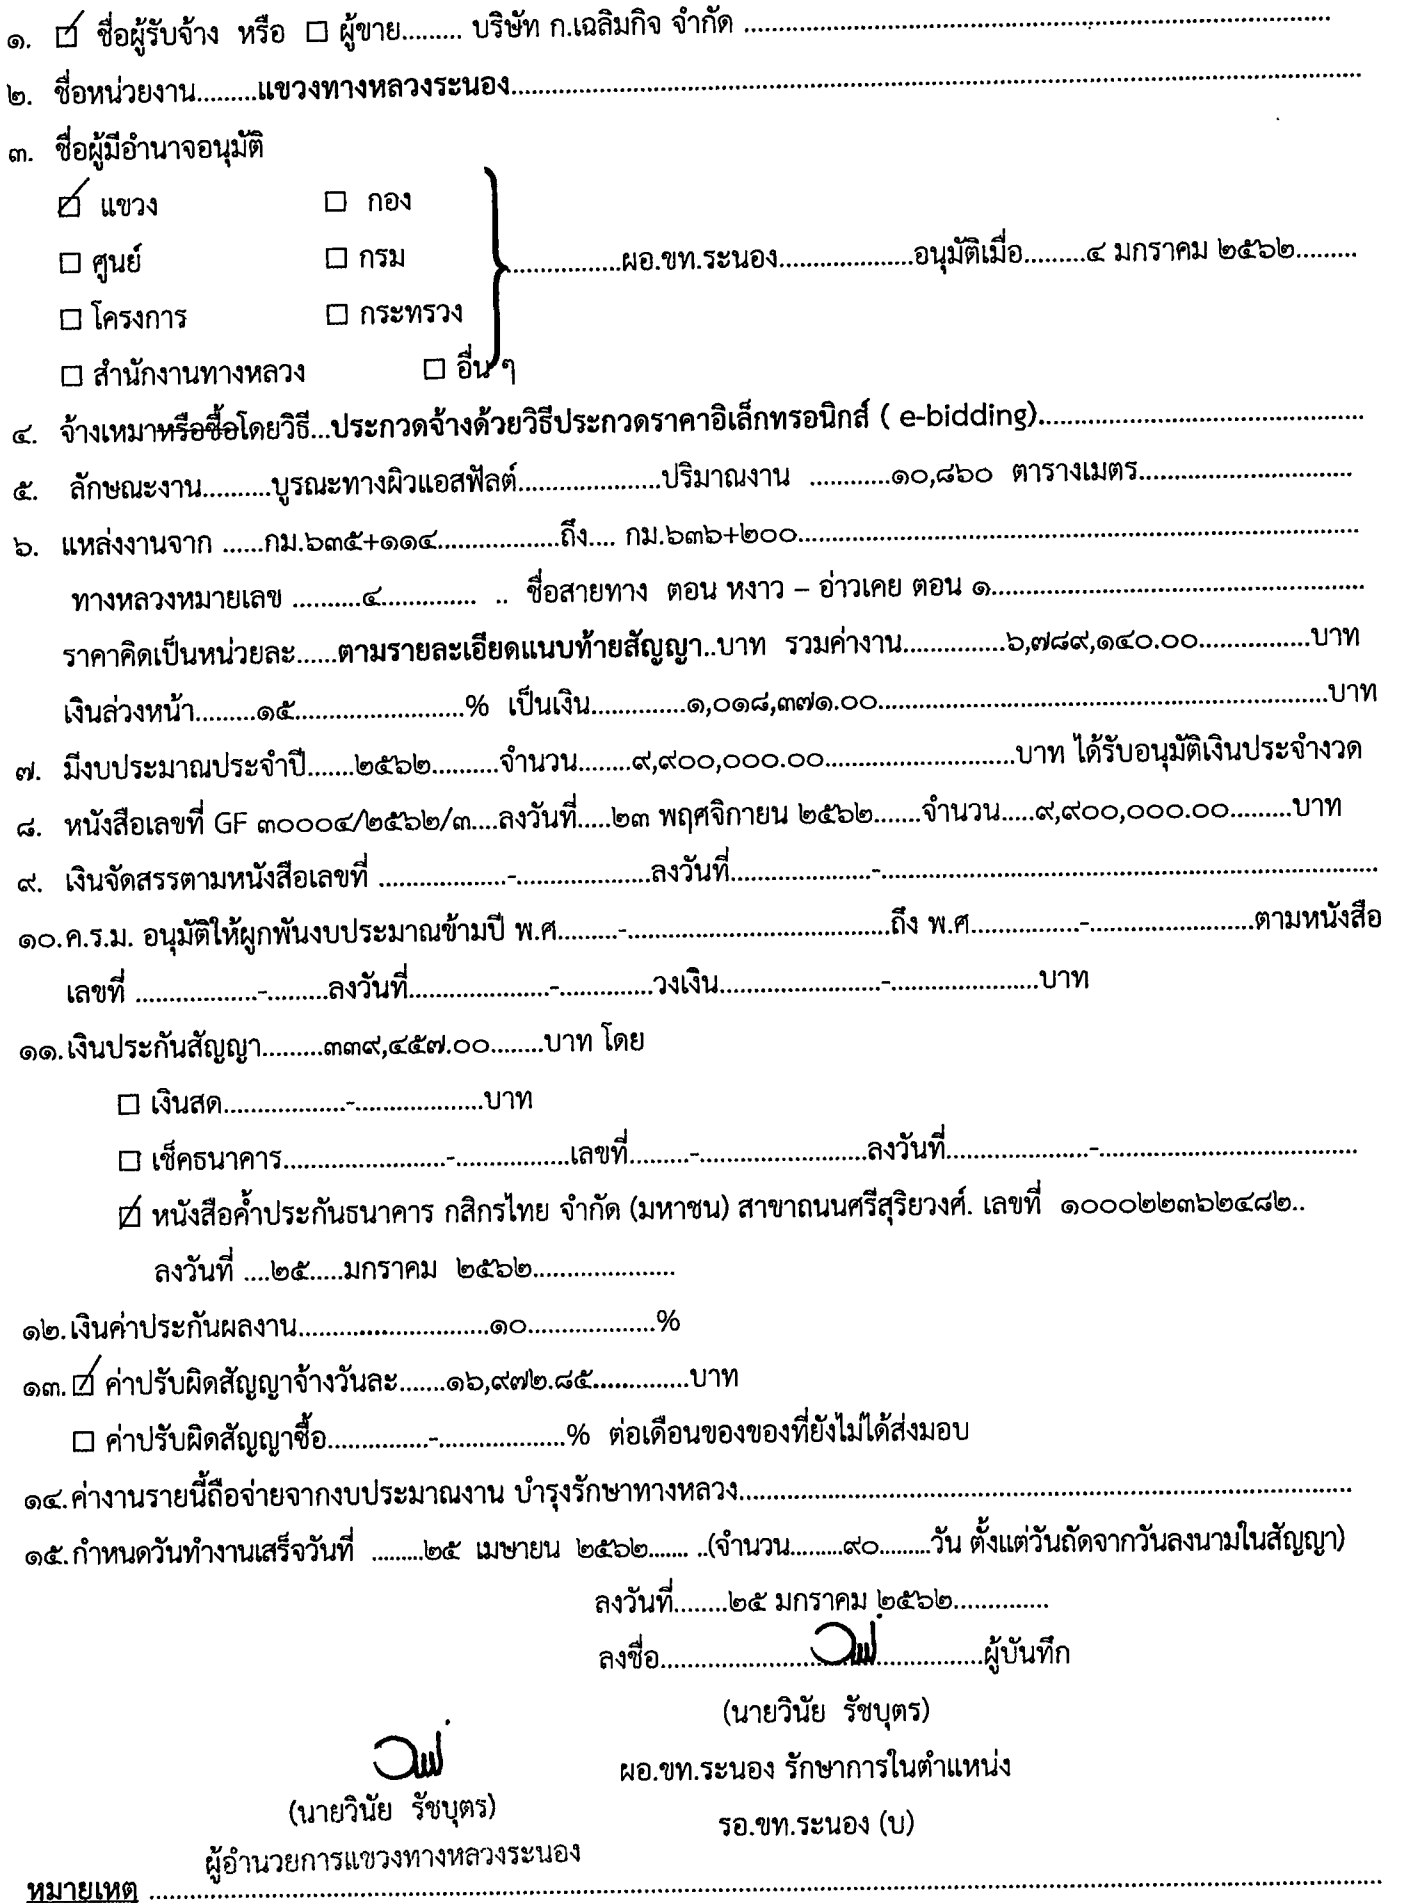 ๑. ☑ ชื่อผู้รับจ้าง หรือ ☐ ผู้ขาย......... บริษัท ก.เฉลิมกิจ จำกัด ..........................................................................................
๒. ชื่อหน่วยงาน.........แขวงทางหลวงระนอง.............................................................................................................................
๓. ชื่อผู้มีอำนาจอนุมัติ
☑ แขวง ☐ กอง
☐ ศูนย์ ☐ กรม .................ผอ.ขท.ระนอง....................อนุมัติเมื่อ.........๔ มกราคม ๒๕๖๒.........
☐ โครงการ ☐ กระทรวง
☐ สำนักงานทางหลวง ☐ อื่น ๆ
๔. จ้างเหมาหรือซื้อโดยวิธี...ประกวดจ้างด้วยวิธีประกวดราคาอิเล็กทรอนิกส์ ( e-bidding)................................................
๕. ลักษณะงาน..........บูรณะทางผิวแอสฟัลต์.....................ปริมาณงาน ............๑๐,๘๖๐ ตารางเมตร...............................
๖. แหล่งงานจาก ......กม.๖๓๕+๑๑๔..................ถึง.... กม.๖๓๖+๒๐๐...................................................................................
ทางหลวงหมายเลข ..........๔.............. .. ชื่อสายทาง ตอน หงาว – อ่าวเคย ตอน ๑.......................................................
ราคาคิดเป็นหน่วยละ......ตามรายละเอียดแนบท้ายสัญญา..บาท รวมค่างาน...............๖,๗๘๙,๑๔๐.๐๐................บาท
เงินล่วงหน้า.........๑๕.........................% เป็นเงิน..............๑,๐๑๘,๓๗๑.๐๐..................................................................บาท
๗. มีงบประมาณประจำปี.......๒๕๖๒..........จำนวน........๙,๙๐๐,๐๐๐.๐๐............................บาท ได้รับอนุมัติเงินประจำงวด
๘. หนังสือเลขที่ GF ๓๐๐๐๔/๒๕๖๒/๓....ลงวันที่.....๒๓ พฤศจิกายน ๒๕๖๒.......จำนวน.....๙,๙๐๐,๐๐๐.๐๐.........บาท
๙. เงินจัดสรรตามหนังสือเลขที่ ...................-....................ลงวันที่.....................-..........................................................................
๑๐.ค.ร.ม. อนุมัติให้ผูกพันงบประมาณข้ามปี พ.ศ.........-.......................................ถึง พ.ศ................-........................ตามหนังสือ
เลขที่ ..................-.........ลงวันที่.....................-..............วงเงิน........................-......................บาท
๑๑.เงินประกันสัญญา.........๓๓๙,๔๕๗.๐๐........บาท โดย
☐ เงินสด..................-...................บาท
☐ เช็คธนาคาร........................-.................เลขที่.........-.........................ลงวันที่.........................-......................................
☑ หนังสือค้ำประกันธนาคาร กสิกรไทย จำกัด (มหาชน) สาขาถนนศรีสุริยวงศ์. เลขที่ ๑๐๐๐๒๒๓๖๒๔๘๒..
ลงวันที่ ....๒๕.....มกราคม ๒๕๖๒.....................
๑๒.เงินค่าประกันผลงาน............................๑๐...................%
๑๓.☑ ค่าปรับผิดสัญญาจ้างวันละ.......๑๖,๙๗๒.๘๕..............บาท
☐ ค่าปรับผิดสัญญาซื้อ...............-...................% ต่อเดือนของของที่ยังไม่ได้ส่งมอบ
๑๔.ค่างานรายนี้ถือจ่ายจากงบประมาณงาน บำรุงรักษาทางหลวง...........................................................................................
๑๕.กำหนดวันทำงานเสร็จวันที่ .........๒๕ เมษายน ๒๕๖๒....... ..(จำนวน.........๙๐.........วัน ตั้งแต่วันถัดจากวันลงนามในสัญญา)
ลงวันที่........๒๕ มกราคม ๒๕๖๒..............
ลงชื่อ................................................ผู้บันทึก
(นายวินัย รัชบุตร)
ผอ.ขท.ระนอง รักษาการในตำแหน่ง
รอ.ขท.ระนอง (บ)
(นายวินัย รัชบุตร)
ผู้อำนวยการแขวงทางหลวงระนอง
หมายเหตุ ..........................................................................................................................................................